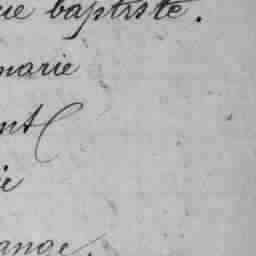 ue baptiste.
marie
nt
ie
ange.